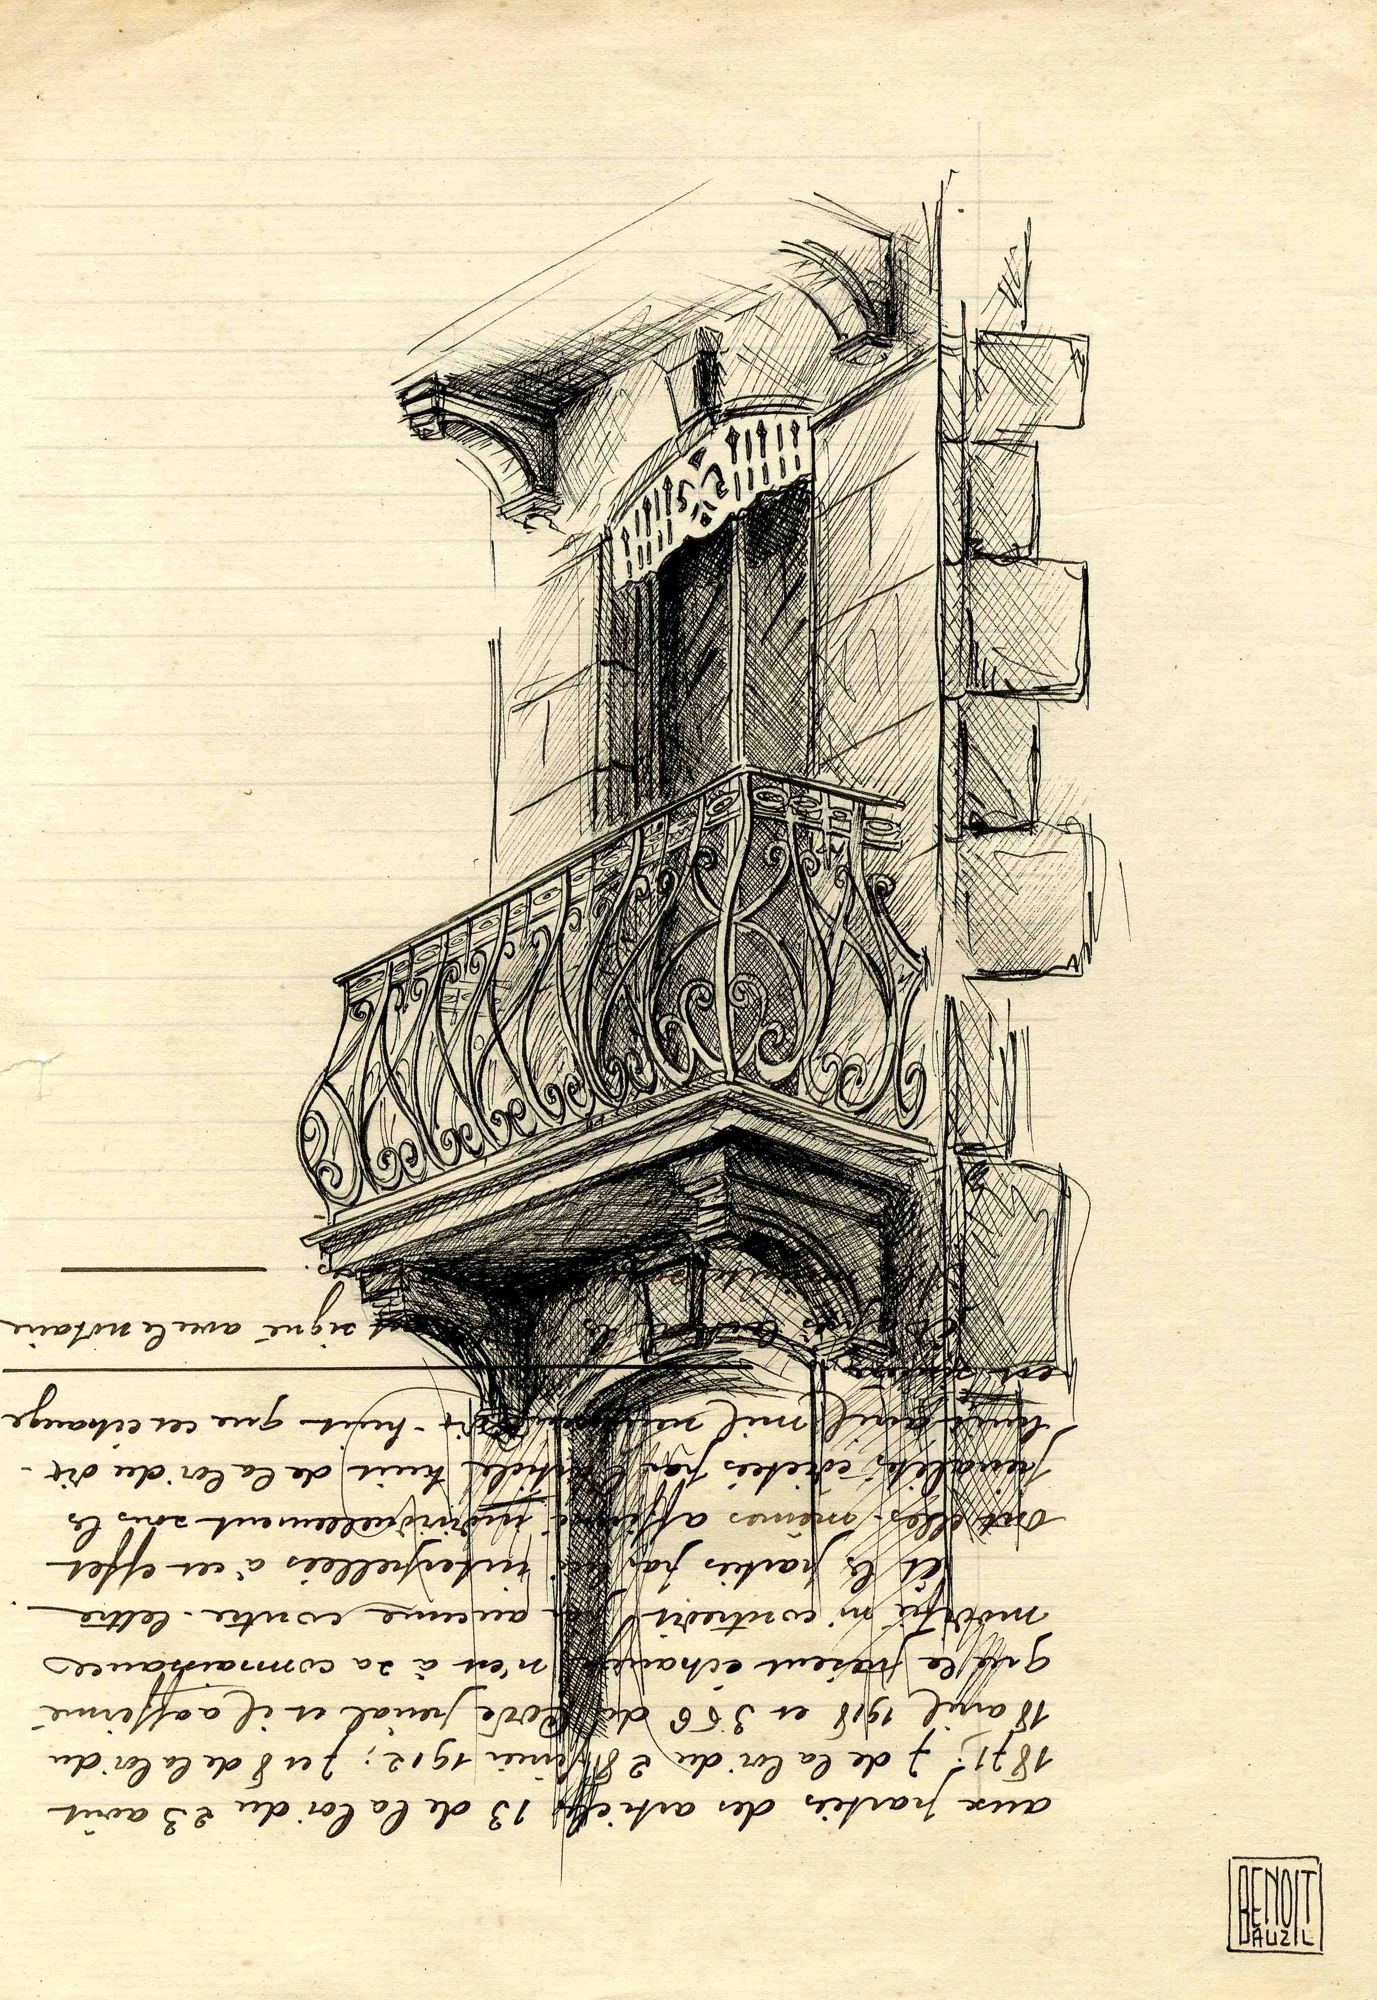 aux parties des articles 13 de la loi du 23 août
1871; 7 de la loi du 28 février 1912; 7 et 8 de la loi du
18 avril 1918 et 366 du Code pénal et il a affirmé
que le présent échange n'est à sa connaissance
modifié ni contredit par aucune contre-lettre
Et les parties par lui interpellées à cet effet
ont elles-mêmes affirmé individuellement sous les
pénalités édictées par l'article huit de la loi du dix-
huit avril mil neuf cent dix-huit que cet échange
en
Et après lecture les ont signé avec le notaire
BENOIT
AUZIL